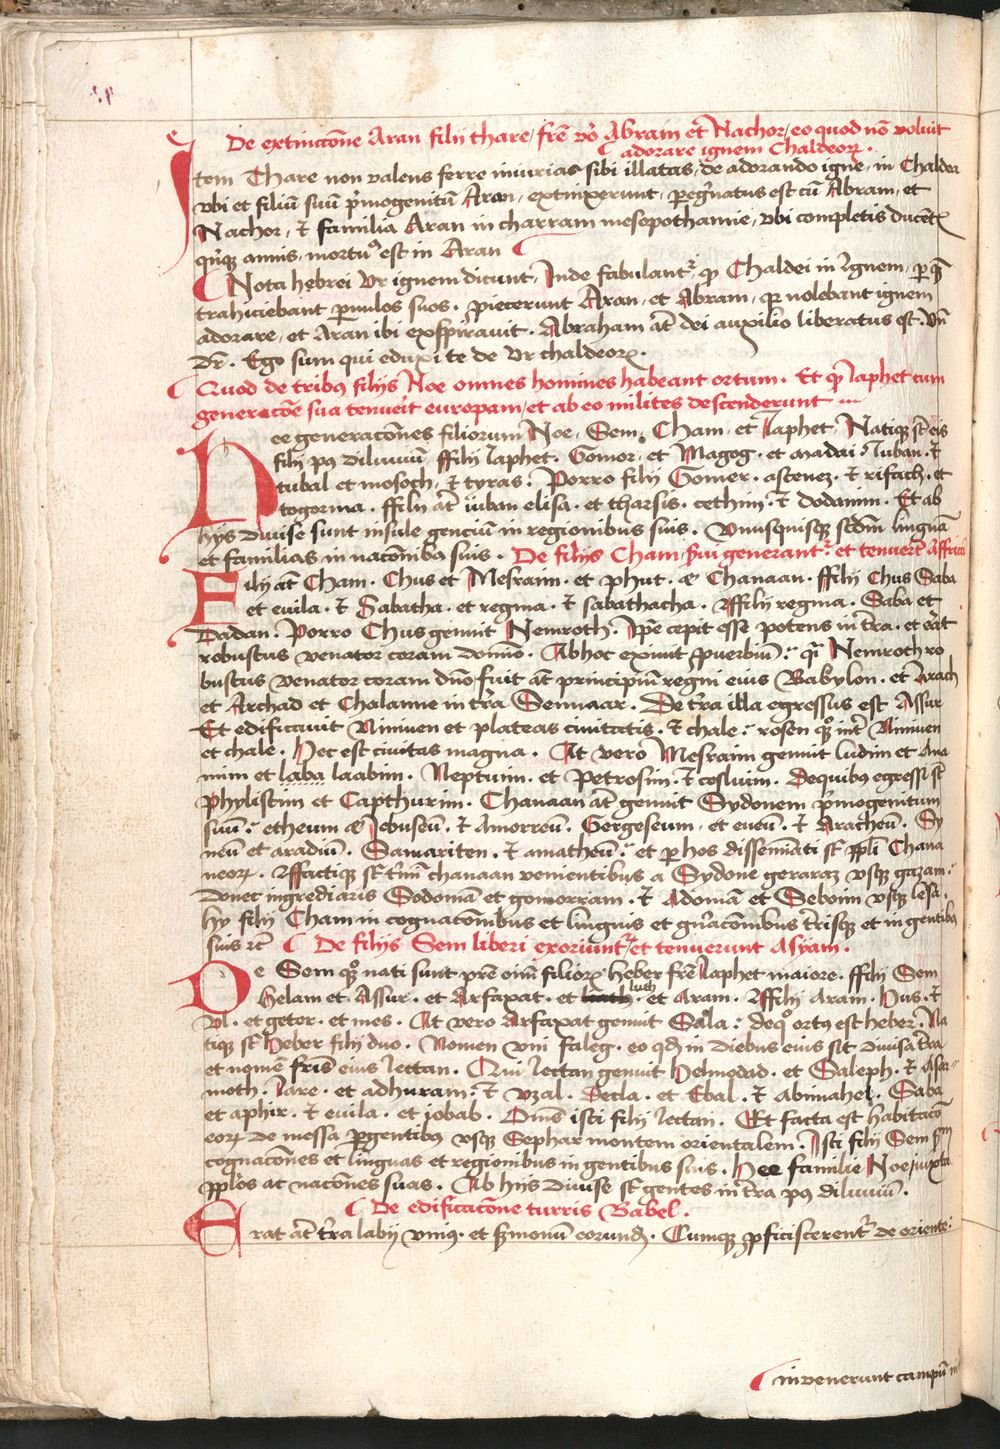 De extinctiōne Aran filij thare, frē v̄o Abram et Nachor, eo quod nō voluit
adorare ignem Chaldeoꝝ.
Item Thare non valens ferre iniurias sibi illatas, de adorando igne, in Chaldea
vbi et filiū suū p̄mogenitū Aran, extinxerunt, peg̃natus est cū Abram, et
Nachor, ⁊ familia Aran in charram mesopothamie, vbi completis ducētꝭ
qnꝫ annis, mortuꝰ est in Aran
Nota hebrei Vr ignem dicunt, Inde fabulantᷣ qꝫ Chaldei in ignem, ꝑ quē
trahiciebant ꝑuulos suos. piecerunt Aran, et Abram, qꝛ nolebant ignem
adorare, et Aran ibi exspirauit. Abraham āt dei auxilio liberatus est. Vn̄
Dr̄. Ego sum qui eduxi te de Vr chaldeoꝝ.
Quod de tribꝰ filijs Noe omnes homines habeant ortum. Et qꝫ Iaphet cum
generacōe sua tenuerit europam, et ab eo milites descenderunt
Hee generacōnes filiorum Noe, Sem, Cham, et Iaphet. Natiqꝫ st̄ eis
filij pꝰ diluuiū ffilij Iaphet. Gomor, et Magog. et madai. Iuban. ⁊
tubal et mosoch, ⁊ tyras. Porro filij Gomer. ascenez. ⁊ rifach. et
togorma. ffilij āt iuban elisa. et tharsis. cethim. ⁊ dodanim. Et ab
hijs diuise sunt insule genciū in regionibus suis. Vnusquisqꝫ scdm linguā
et familias in nacōnibꝰ suis. De filijs Cham, qui generantᷣ. et tenuert Affricā
Filij āt Cham. Chus et Mesraim. et phut. & Chanaan. ffilij Chus Saba
et euila. ⁊ Sabatha. et regma. ⁊ sabathacha. ffilij regma. Saba et
Dadan. Porro Chus genuit Nemroth. Ip̄e cepit esse potens in t̄ra. et erat
robustus venator coram domino. Ab hoc exiuit ꝓuerbiū. q̄i Nemroth ro
bustus venator coram dn̄o, fuit āt principiū regni eius Babylon. et Arach
et Archad et Chalanne in t̄ra Sennaar. De t̄ra illa egressus est Assur
Et edificauit Niniuen et plateas ciuitatis. ⁊ chale. rosen qꝫ int̄ Niniuen
et chale. Hec est ciuitas magna. At vero Mesraim genuit ludim et Ana
mim et laba laabim. Neptuim. et Petrosim. ⁊ cosluim. De quibꝰ egressi st̄
Phylistim et Capthurim. Chanaan āt genuit Sydonem p̄mogenitum
suū. etheum & Iebuseū. ⁊ Amorreū. Gergeseum, et eueū. ⁊ Aracheū. Sy
neū et aradiū. Samariten. ⁊ amatheū. et ꝑ hos disseminati st̄ ppl̄i Chana
neoꝝ. ffactiqꝫ st̄ t̄mī chanaan venientibus a Sydone geraraz vsqꝫ gazam.
donec ingrediaris Sodomā et gomorram. ⁊ Adomā et Seboim vsqꝫ lesa.
hy filij Cham in cognacōnibus et linguis et gn̄acōnibus t̄risqꝫ et in gentibꝰ
suis ⁊c̄ De filijs Sem liberi exoriuntᷣ et tenuerunt Asyam.
De Sem qꝫ nati sunt pr̄e oīm filioꝝ heber frē Iaphet maiore. ffilij Sem
Helam et. Assur. et Arfaxat. et luch. et Aram. ffilij Aram. Hus. ⁊
Vl. et geter. et mes. At vero Arfaxat genuit Sala. de qꝰ ortꝰ est heber. Na
tiqꝫ st̄ heber filij duo. Nomen vni faleg. eo qd in diebus eius sit diuisa t̄ra
et nomē fr̄is eius Iectan. Qui Iectan genuit Helmodad. et Saleph. ⁊ Asar
moth. Iare. et adhuram. ⁊ vzal. Decla. et Ebal. ⁊ Abimahel. Saba
et aphir. ⁊ euila. et iobab. Oms̄ isti filij Iectan. Et facta est habitacō
eoꝝ de messa ꝑgentibꝰ vsqꝫ Sephar montem orientalem. Isti filij Sem sm̄
cognacōnes et linguas et regionibus in gentibus suis. Hee familie Noe, iuxta
pp̄los ac nacōnes suas. Ab hijs diuise st̄ gentes in t̄ra pꝰ diluuiū.
De edificacōne turris Babel.
Erat āt t̄ra labij vniꝰ. et s̄monū eorundꝫ. Cumqꝫ ꝓficiscerentᷣ de oriente
inuenerunt campū